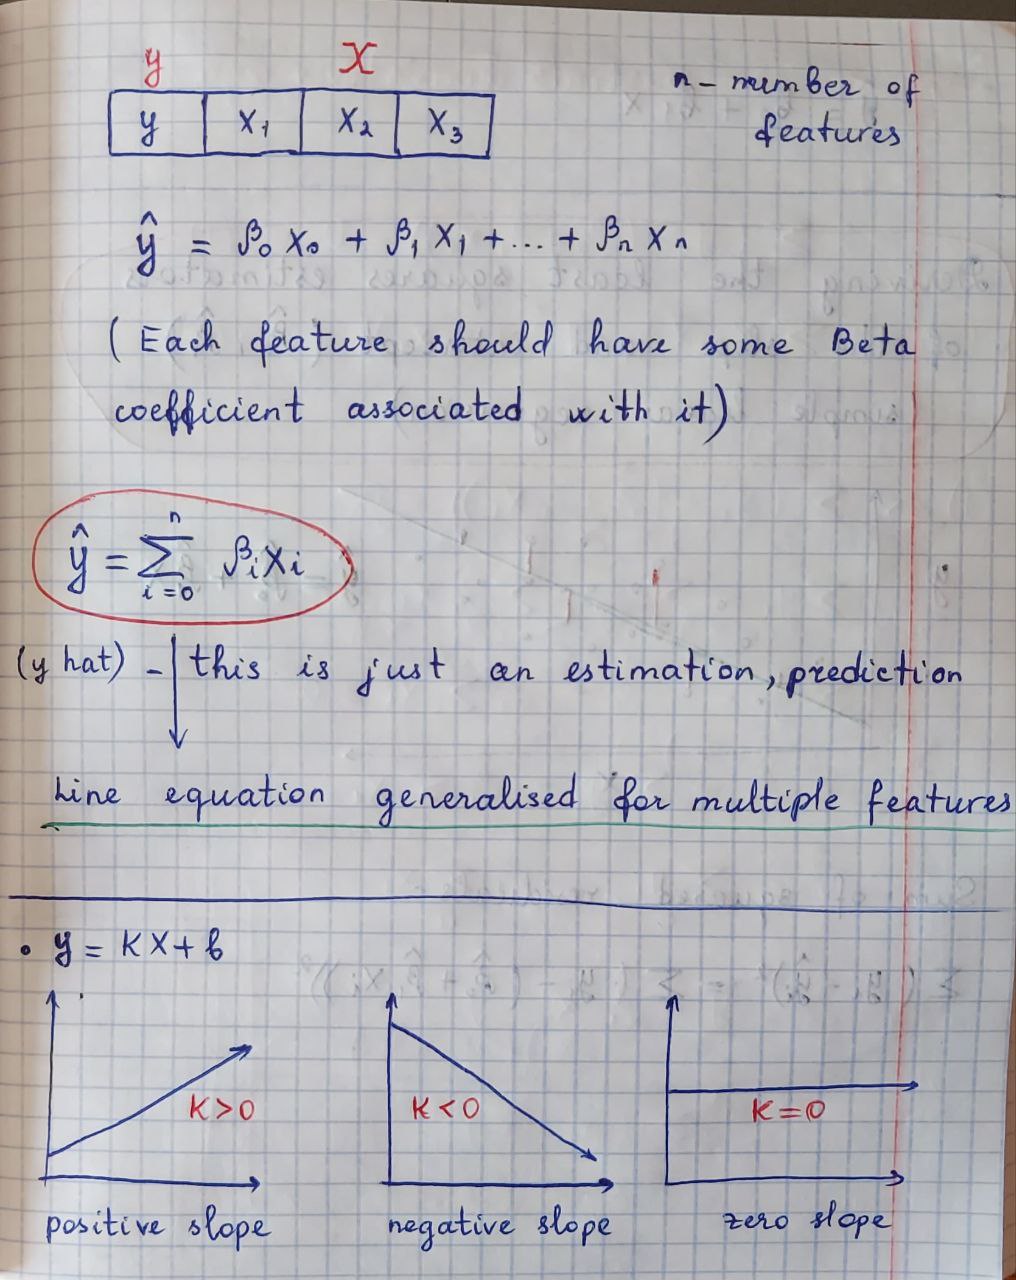 y X
y X₁ X₂ X₃
n – number of
features
ŷ = β₀ X₀ + β₁ X₁ + ... + βₙ Xₙ
( Each feature should have some Beta
coefficient associated with it)
ŷ = ∑ⁿᵢ₌₀ βᵢXᵢ
(y hat) – this is just an estimation, prediction
Line equation generalised for multiple features
• y = KX + b
K>0 K<0 K=0
positive slope negative slope zero slope